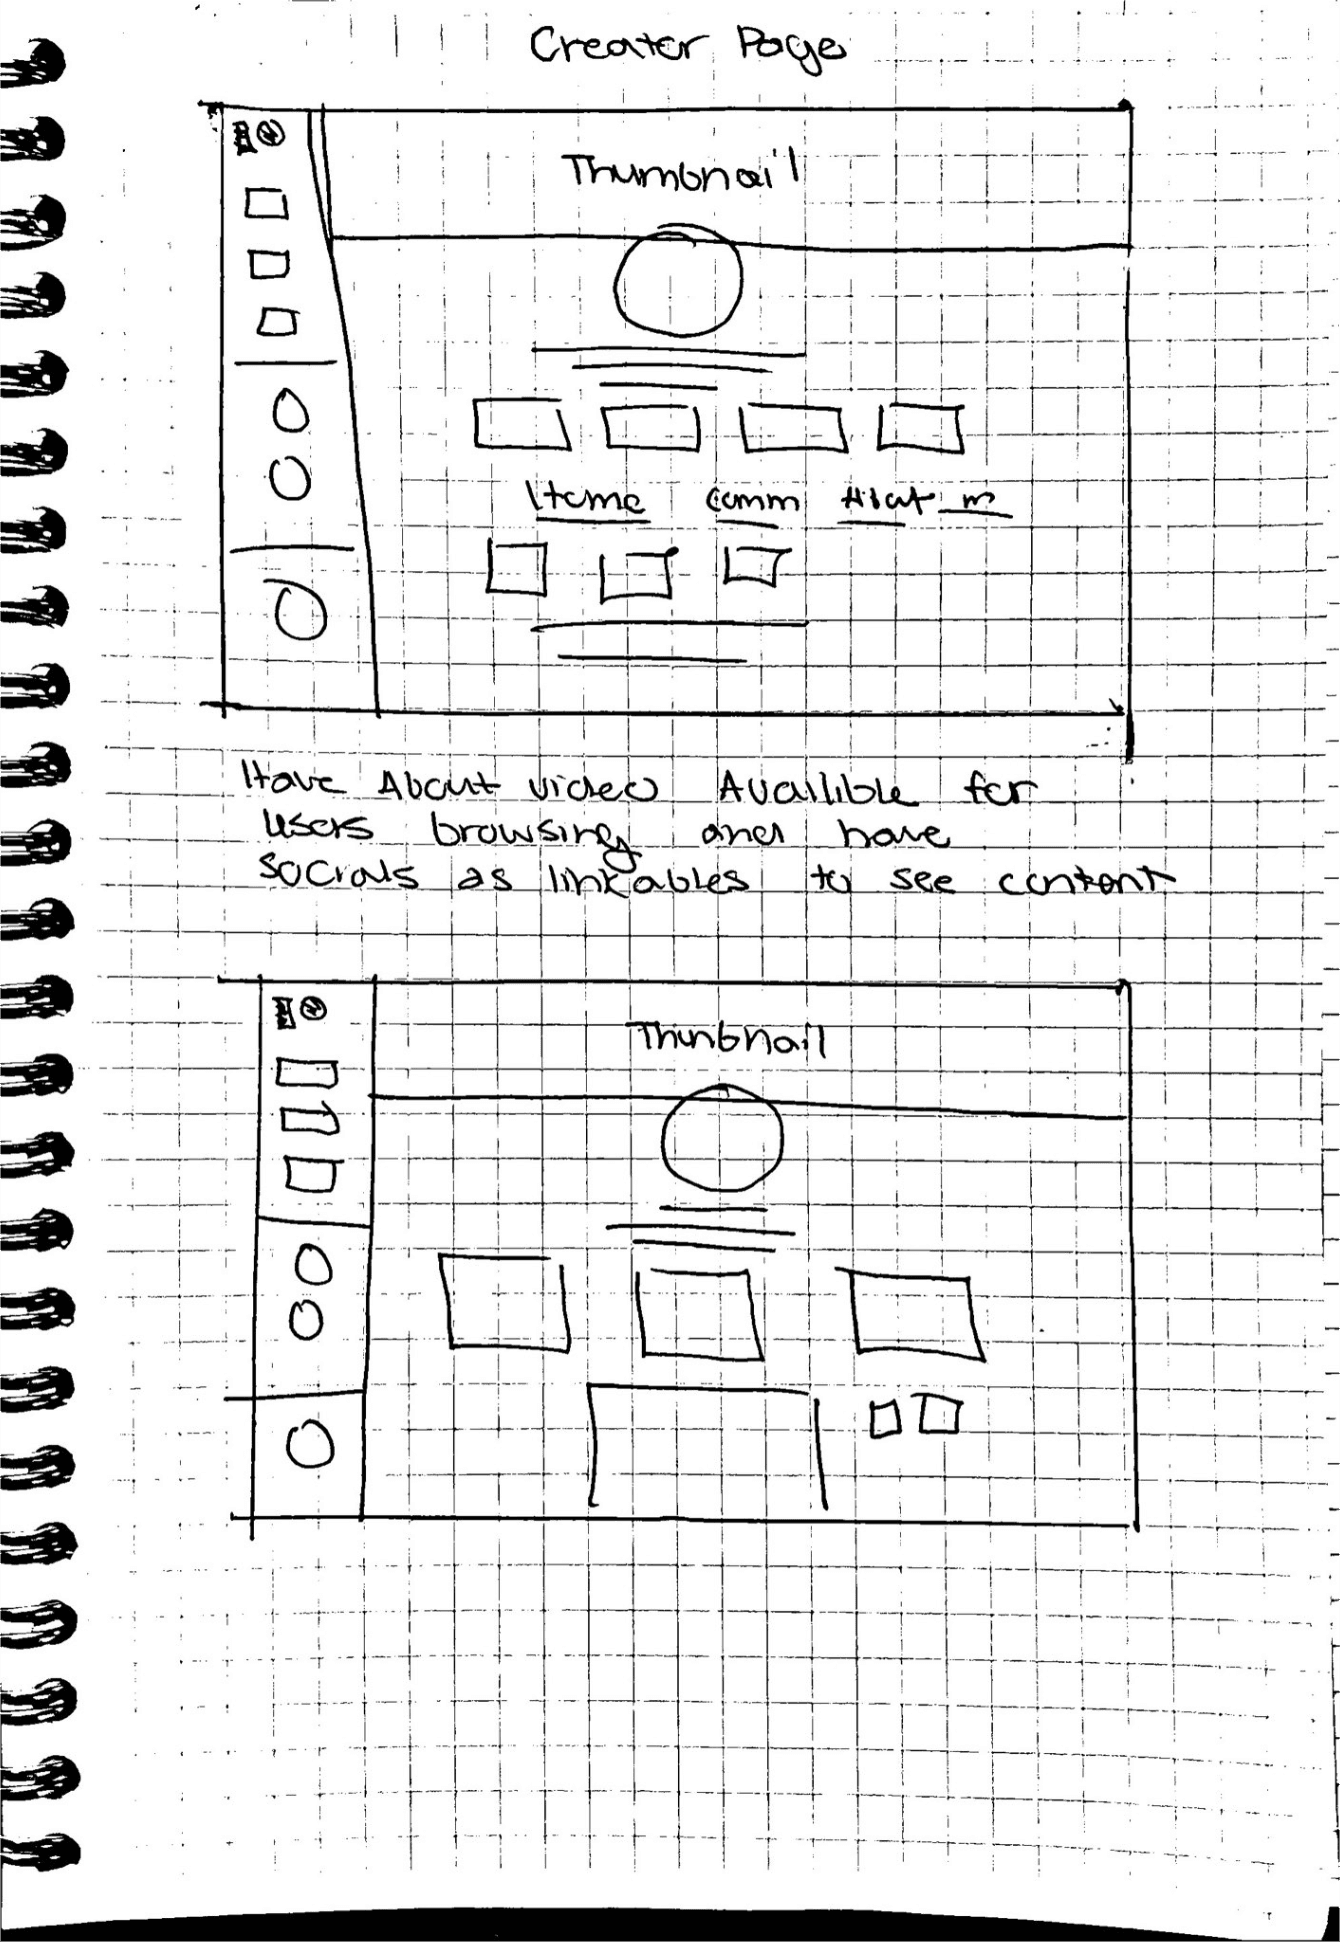 Creater Page
Thumbnail
Home Comm About
Have About video Availible for
users browsing and have
socials as linkables to see content
Thinbnail